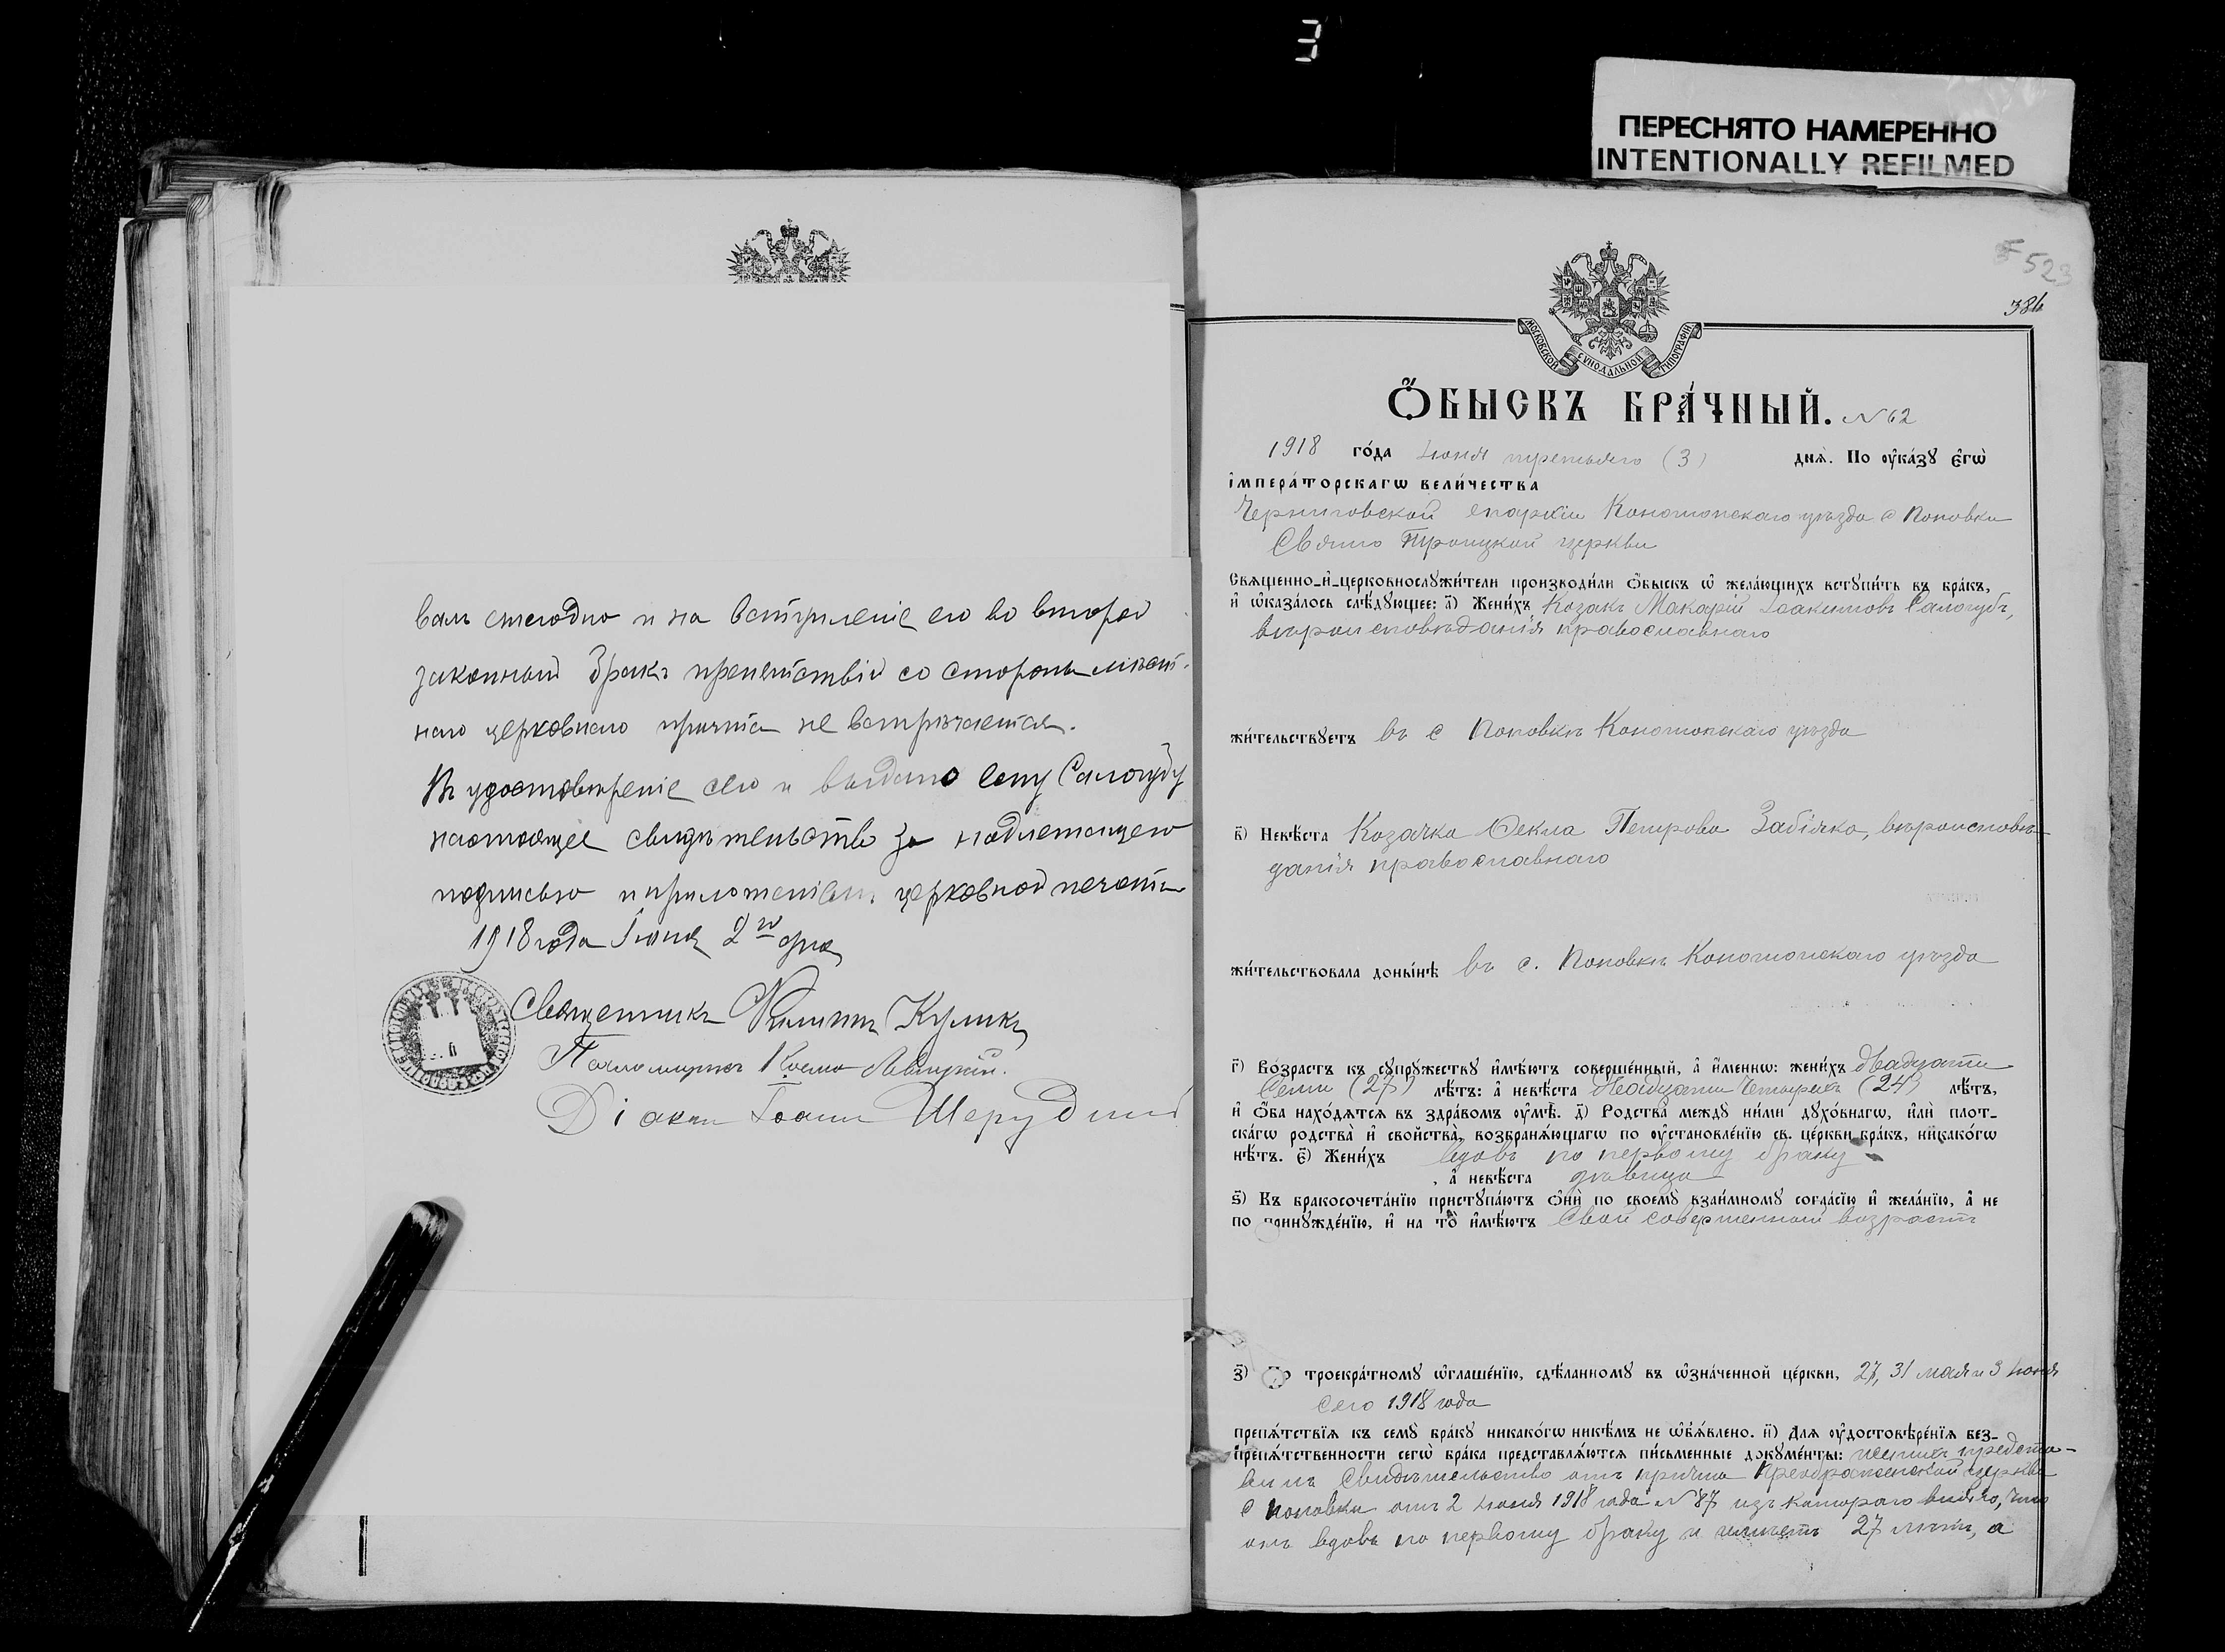 ПЕРЕСНЯТО НАМЕРЕННО
INTENTIONALLY REFILMED
валъ ежегодно и на вступленіе его во второй
законный бракъ препятствій со стороны мѣст-
наго церковнаго причта не встрѣчается.
Въ удостовѣреніе сего и выдано сему Самогубу
настоящее свидѣтельство за надлежащею
подписью и приложеніемъ церковной печати
1918 года Іюня 2го дня
Священникъ Филиппъ Куликъ
Псаломщикъ Косма Левицкій.
Діаконъ Іоаннъ
523
386
МОСКОВСКОЙ СѴНОДАЛЬНОЙ ТИПОГРАФІИ
Ѻ҆БЫСКЪ БРА́ЧНЫЙ. N 62
1918 го́да Іюня третьяго (3) днѧ̀. По оу҆ка́зу є҆гѡ̀
і҆мпера́торскагѡ вели́чества
Черниговской епархіи Конотопскаго уѣзда с Поповки
Свято Троицкой церкви
Свѧщенно-и҆-церковнослꙋжи́тели производи́ли ѻ҆́быскъ ѡ҆ жела́ющихъ встꙋпи́ть въ бра́къ,
и҆ ѡ҆каза́лось слѣ́дꙋющее: а҃) Жени́хъ Козакъ Макарій Іоакимовъ Самогубъ,
вѣроисповѣданія православнаго
жи́тельствꙋетъ въ с Поповкѣ Конотопскаго уѣзда
в҃) Невѣ́ста Козачка Ѳекла Петрова Забіяко, вѣроисповѣ-
данія православнаго
жи́тельствовала доны́нѣ въ с. Поповкѣ Конотопскаго уѣзда
г҃) Во́зрастъ къ сꙋпрꙋ́жествꙋ и҆мѣ́ютъ соверше́нный, а҆ и҆́меннѡ: жени́хъ Двадцати
Семи (27) лѣ́тъ: а҆ невѣ́ста Двадцати Четырехъ (24) лѣ́тъ,
и҆ ѻ҆́ба нахо́дѧтсѧ въ здра́вомъ оу҆мѣ̀. д҃) Родства̀ междꙋ̀ ни́ми дꙋхо́внагѡ, и҆лѝ плот-
ска́гѡ родства̀ и҆ свойства̀, возбранѧ́ющагѡ по оу҆становле́нїю св. це́ркви бра́къ, никако́гѡ
нѣ́тъ. є҃) Жени́хъ вдовъ по первому браку
, а҆ невѣ́ста дѣвица
ѕ҃) Къ бракосочета́нїю пристꙋпа́ютъ ѻ҆нѝ по своемꙋ̀ взаи́мномꙋ согла́сїю и҆ жела́нїю, а҆ не
по принꙋжде́нїю, и҆ на то̀ и҆мѣ́ютъ Свой совершенный возрастъ
з҃) По троекра́тномꙋ ѡ҆глаше́нїю, сдѣ́ланномꙋ въ ѡ҆зна́ченной це́ркви, 27, 31 мая и 3 Іюня
Сего 1918 года
препѧ́тствїѧ къ семꙋ̀ бра́кꙋ никако́гѡ никѣ́мъ не ѡ҆б̾ѧ́влено. и҃) Длѧ оу҆достовѣре́нїѧ без-
препѧ́тственности сегѡ̀ бра́ка представлѧ́ютсѧ пи́сьменные докꙋме́нты: женихъ предста-
вилъ Свидѣтельство отъ причта Преображенской церкви
с Поповки отъ 2 Іюня 1918 года N 87 изъ котораго видно, что
онъ вдовъ по первому браку и имѣетъ 27 лѣтъ, а